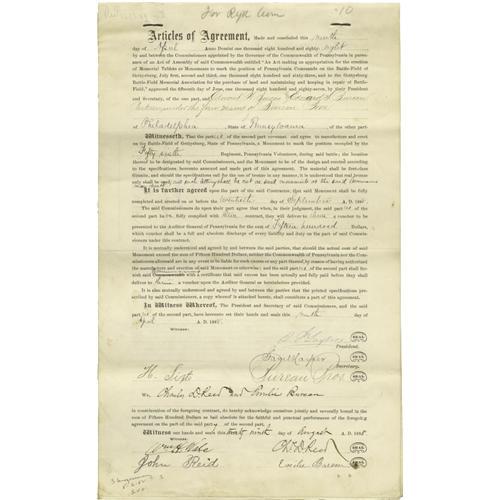 For Ryd Com
10
Articles of Agreement, Made and concluded this ninth
day of April Anno Domini one thousand eight hundred and eighty-eight
by and between the Commissioners appointed by the Governor of the Commonwealth of Pennsylvania in pursu-
ance of an Act of Assembly of said Commonwealth entitled "An Act making an appropriation for the erection of
Memorial Tablets or Monuments to mark the position of Pennsylvania Commands on the Battle-Field of
Gettysburg, July first, second and third, one thousand eight hundred and sixty-three, and to the Gettysburg
Battle-Field Memorial Association for the purchase of land and maintaining and keeping in repair of Battle-
Field," approved the fifteenth day of June, one thousand eight hundred and eighty-seven, by their President
and Secretary, of the one part, and Edward W. Bureau Edward L. Bureau
under the firm name of Bureau Bros
of Philadelphia, State of Pennsylvania of the other part.
Witnesseth, That the part of the second part covenant and agree to manufacture and erect
on the Battle-Field of Gettysburg, State of Pennsylvania, a Monument to mark the position occupied by the
Fifty sixth Regiment, Pennsylvania Volunteers, during said battle; the location
thereof to be designated by said Commissioners, and the Monument to be of the design and erected according
to the specifications, hereunto annexed and made part of this agreement. The material shall be first-class
Granite, and should the specifications call for the use of bronze in any manner, it is understood that real bronze
only shall be used; and
It is further agreed upon the part of the said Contractor, that said Monument shall be fully
completed and erected on or before the twentieth day of September A. D. 188
The said Commissioners do upon their part agree that when, in their judgment, the said part of the
second part fully complied with their contract, they will deliver to them a voucher to be
presented to the Auditor General of Pennsylvania for the sum of Fifteen hundred Dollars,
which contract shall be a full and absolute discharge of every liability and duty on the part of said Commis-
sioners under this contract.
It is mutually understood and agreed by and between the said parties, that should the actual cost of said
Monument exceed the sum of Fifteen Hundred Dollars, neither the Commonwealth of Pennsylvania nor the Com-
missioners aforesaid are in any event to be liable for such excess or any part thereof, by reason of having authorized
the manufacture and erection of said Monument or otherwise; and the said part of the second part shall fur-
nish said Commissioners with a certificate that said excess has been actually and fully paid before they shall
deliver to them a voucher upon the Auditor General as hereinbefore provided.
It is also mutually understood and agreed by and between the parties that the printed specifications pre-
scribed by said Commissioners, a copy whereof is attached hereto, shall constitute a part of this agreement.
In Witness Whereof, The President and Secretary of said Commissioners, and the said
part of the second part, have hereunto set their hands and seals this ninth day of
April A. D. 188
Witness:
SEAL
President.
SEAL
Secretary.
H. Sist Bureau Bros. SEAL
we Charles D. Reed and Emilie Bureau
in consideration of the foregoing contract, do hereby acknowledge ourselves jointly and severally bound in the
sum of Fifteen Hundred Dollars as bail absolute for the faithful and punctual performance of the foregoing
agreement on the part of the said party of the second part.
Witness our hands and seals this thirty ninth day of August A. D. 188
Witness:
Chs. D. Reed SEAL
John Reid Emilie Bureau SEAL